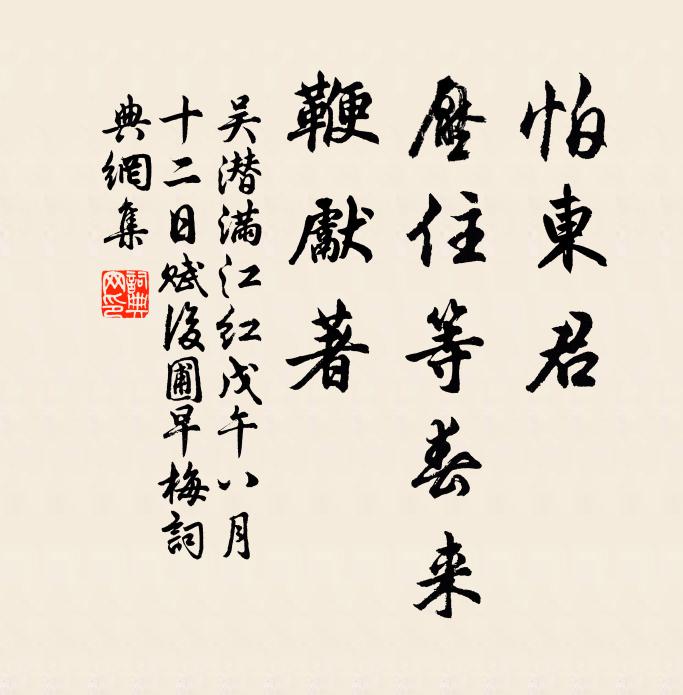 怕東君
壓住等春来
鞭獻著
吴潛满江红戊午八月
十二日赋後圃早梅詞
典網集
詞典
网印